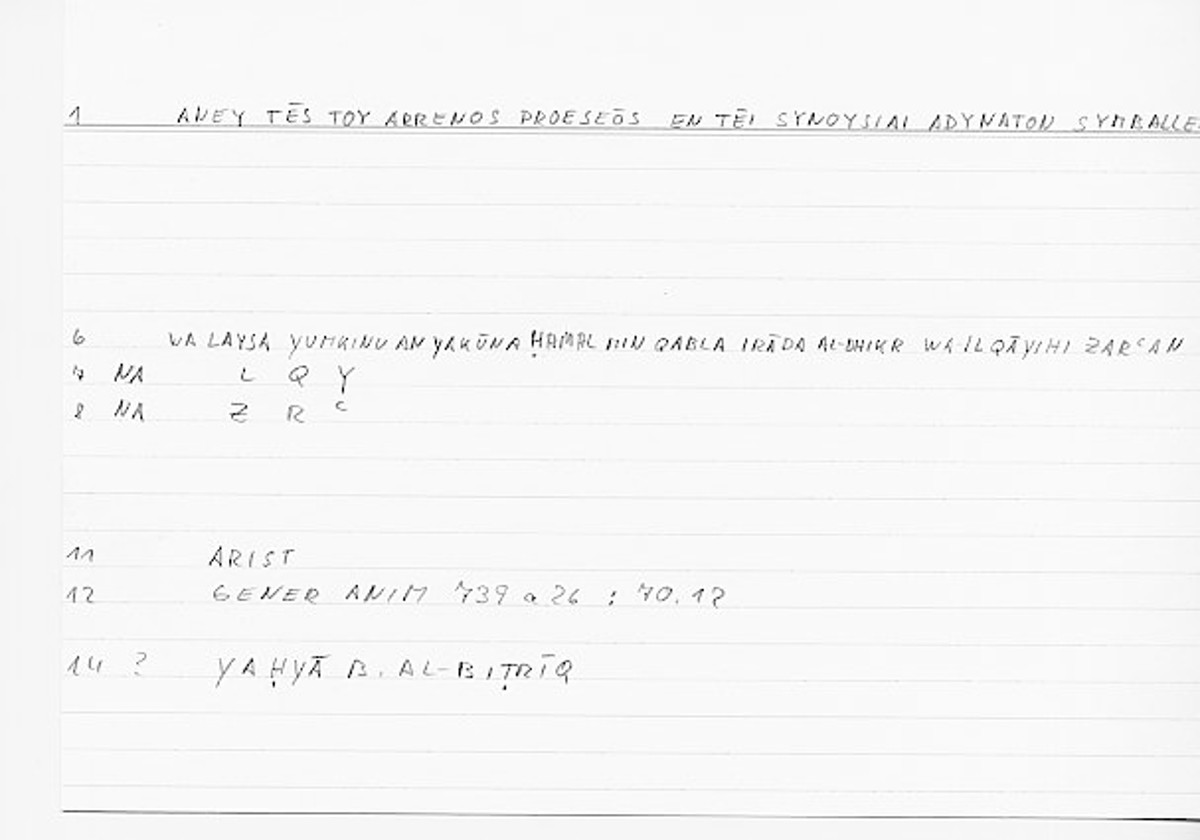 1 ANEY TĒS TOY ARRENOS PROESEŌS EN TĒI SYNOYSIAI ADYNATON SYMBALLE
6 WA LAYSA YUMKINU AN YAKŪNA ḤAMAL MIN QABLA IRĀDA AL-DHIKR WA-ILQĀYIHI ZARʿAN
7 NA L Q Y
8 NA Z R ʿ
11 ARIST
12 GENER ANIM 739 a 26 : 70.12
14 ? YAḤYĀ B. AL-BIṬRĪQ